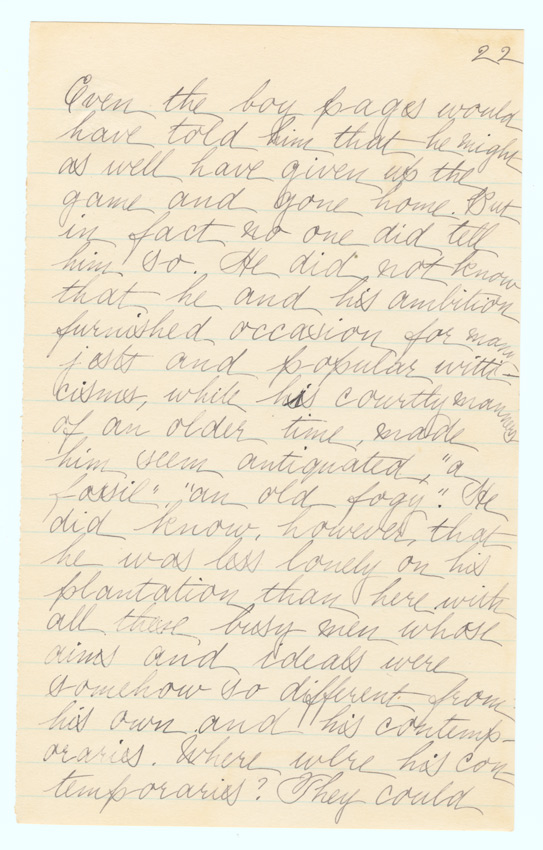 22
Even the boy pages would
have told him that he might
as well have given up the
game and gone home. But
in fact no one did tell
him so. He did not know
that he and his ambition
furnished occasion for many
jests and popular witti-
cisms, while his courtly manners
of an older time, made
him seem antiquated, "a
fossil", "an old fogy". He
did know, however, that
he was less lonely on his
plantation than here with
all these busy men whose
aims and ideals were
somehow so different from
his own and his contemp-
oraries. Where were his con-
temporaries? They could